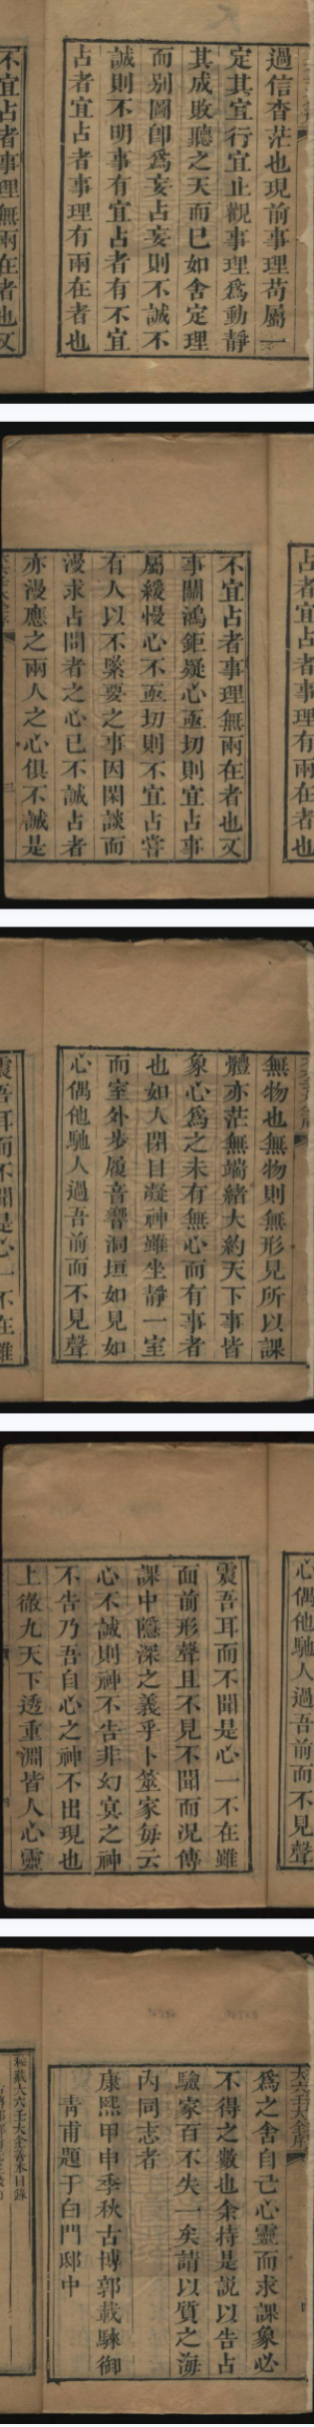 過信杳茫也現前事理苟屬一
定其宜行宜止觀事理爲動靜
其成敗聽之天而已如舍定理
而别圖卽爲妄占妄則不誠不
誠則不明事有宜占者有不宜
占者宜占者事理有兩在者也
不宜占者事理無兩在者也又
不宜占者事理無兩在者也又
事關鴻鉅疑心亟切則宜占事
屬緩慢心不亟切則不宜占嘗
有人以不緊要之事因閑談而
漫求占問者之心已不誠占者
亦漫應之兩人之心俱不誠是
無物也無物則無形見所以課
體亦茫無端緒大約天下事皆
象心爲之未有無心而有事者
也如人閉目凝神雖坐靜一室
而室外步履音響洞垣如見如
心偶他馳人過吾前而不見聲
震吾耳而不聞是心一不在雖
占者宜占者事理有兩在者也
震吾耳而不聞是心一不在雖
面前形聲且不見不聞而况傳
課中隱深之義乎卜筮家每云
心不誠則神不告非幻冥之神
不告乃吾自心之神不出現也
上徹九天下透重淵皆人心靈
心偶他馳人過吾前而不見聲
大六壬大全序
爲之舍自己心靈而求課象必
不得之數也余持是説以告占
驗家百不失一矣請以質之海
内同志者
康熙甲申季秋古博郭載騋御
青甫題于白門邸中
秘藏大六壬大全善本目錄